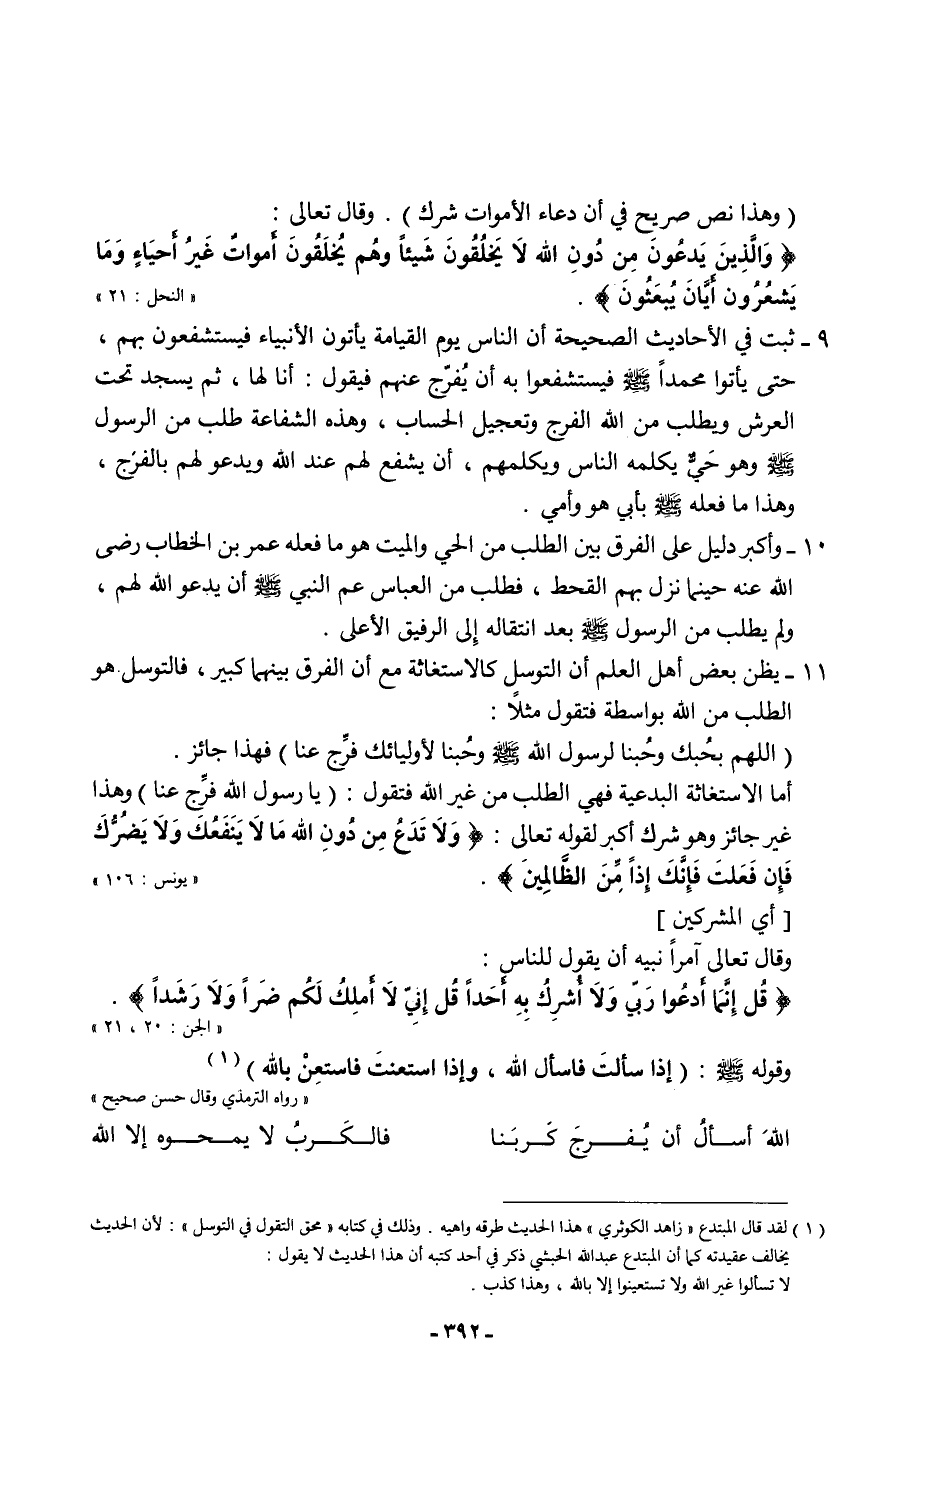 ( وهذا نص صريح في أن دعاء الأموات شرك ) . وقال تعالى :
﴿ وَالَّذِينَ يَدعُونَ مِن دُونِ الله لَا يَخلُقُونَ شَيئاً وهُم يُخلَقُونَ أَمواتٌ غَيرُ أَحيَاءٍ وَمَا
يَشعُرُون أَيَّانَ يُبعَثُونَ ﴾ . « النحل : ٢١ »
٩ ـ ثبت في الأحاديث الصحيحة أن الناس يوم القيامة يأتون الأنبياء فيستشفعون بهم ،
حتى يأتوا محمداً ﷺ فيستشفعوا به أن يُفرّج عنهم فيقول : أنا لها ، ثم يسجد تحت
العرش ويطلب من الله الفرج وتعجيل الحساب ، وهذه الشفاعة طلب من الرسول
ﷺ وهو حَيٌّ يكلمه الناس ويكلمهم ، أن يشفع لهم عند الله ويدعو لهم بالفرَج ،
وهذا ما فعله ﷺ بأبي هو وأمي .
١٠ ـ وأكبر دليل على الفرق بين الطلب من الحي والميت هو ما فعله عمر بن الخطاب رضى
الله عنه حينما نزل بهم القحط ، فطلب من العباس عم النبي ﷺ أن يدعو الله لهم ،
ولم يطلب من الرسول ﷺ بعد انتقاله إلى الرفيق الأعلى .
١١ ـ يظن بعض أهل العلم أن التوسل كالاستغاثة مع أن الفرق بينهما كبير ، فالتوسل هو
الطلب من الله بواسطة فتقول مثلًا :
( اللهم بحُبك وحُبنا لرسول الله ﷺ وحُبنا لأوليائك فرِّج عنا ) فهذا جائز .
أما الاستغاثة البدعية فهي الطلب من غير الله فتقول : ( يا رسول الله فرِّج عنا ) وهذا
غير جائز وهو شرك أكبر لقوله تعالى : ﴿ وَلَا تَدَعُ مِن دُونِ الله مَا لَا يَنَفَعُكَ وَلَا يَضُرُّكَ
فَإِن فَعَلتَ فَإِنَّكَ إِذاً مِّنَ الظَّالِمِينَ ﴾ . « يونس : ١٠٦ »
[ أي المشركين ]
وقال تعالى آمراً نبيه أن يقول للناس :
﴿ قُل إِنَّمَا أَدعُوا رَبّي وَلَا أُشرِكُ بِهِ أَحَداً قُل إِنيّ لَا أَملِكُ لَكُم ضَراً وَلَا رَشَداً ﴾ .
« الجن : ٢٠ ، ٢١ »
وقوله ﷺ : ( إذا سألتَ فاسأل الله ، وإذا استعنتَ فاستعِنْ بالله ) (١)
« رواه الترمذي وقال حسن صحيح »
اللهَ أسـألُ أن يُفـرجَ كَـربَنا فالـكَـربُ لا يمـحـوه إلا الله
( ١ ) لقد قال المبتدع « زاهد الكوثري » هذا الحديث طرقه واهيه . وذلك في كتابه « محق التقول في التوسل » : لأن الحديث
يخالف عقيدته كما أن المبتدع عبدالله الحبشي ذكر في أحد كتبه أن هذا الحديث لا يقول :
لا تسألوا غير الله ولا تستعينوا إلا بالله ، وهذا كذب .
- ٣٩٢ -